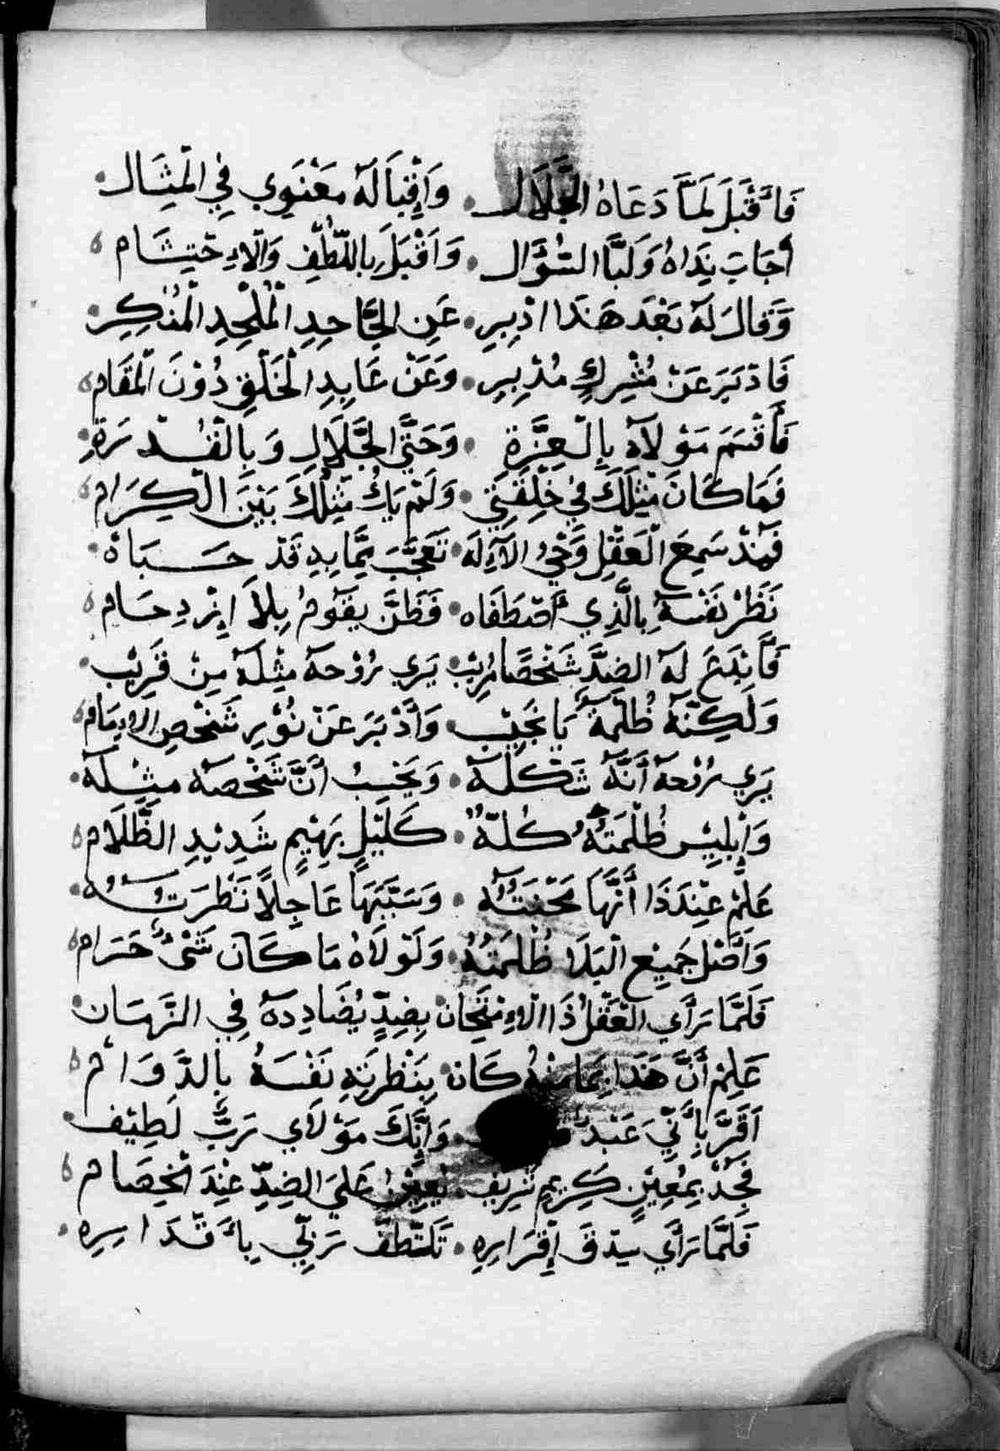 فَأَقْبَلَ لَمَّا دَعَاهُ الجَّلَال . وَإِقْبَالَهُ مَعْنَوِي فِي الْمِثَال .
أَجَابَ نِدَاهُ وَلَبَّا السُّوَّال . وَاَقْبَلَ بِاللُّطْفِ وَالْاِحْتِشَام ه
وَقَالَ لَهُ بَعْدَ هَذَا ادْبِرِ . عَنِ الجَّاحِدِ الْمُلْحِدِ الْمُنْكِرِ .
فَادْبَرَ عَنْ مُشْرِكٍ مُدْبِرِ . وَعَنْ عَابِدِ الْخَلْقِ دُوْنَ الْمَقَام ه
فَأَقْسَمَ مَوْلَاهُ بِالْعِزَّةِ . وَحَقَّ الجَّلَالِ وَبِالْقُدْرَةِ .
فَمَا كَانَ مِثْلَكَ فِي خِلْقَتِي . وَلَمْ يَكُ مِثْلُكَ بَيْنَ الْكِرَام ه
فَمُذْ سَمِعَ الْعَقْلِ وَحْيُ الْآلِهَ . تَعَجَّبَ بِمَّا بِهِ قَدْ حَبَاهْ .
نَظَرْ نَفْسَهُ بِالَّذِي أَصْطَفَاه . فَظَنَّ يَقُوْمُ بِلَا اِزْدِحَام ه
فَأَبْدَعَ لَهُ الضِدَّ شَخْصًا مُرِيْب . يَرَي رُوْحَهُ مِثْلَهُ مِنْ قَرِيْب .
وَلَكِنَّهُ ظُلْمَةٌ يَا نَجِيْب . وَأَدْبَرَ عَنْ نُوْرِ شَخْصِ الاِمَام ه
يَرَي رُوْحَهُ اَنَّهُ شَكْلَهُ . وَيَحْسِبُ أَنَّ شَخْصَهُ مِثْلَهُ .
وَإِبْلِيْسِ ظُلْمَتُهُ كُلّهُ . كَلَيْلٍ بَهِيْمٍ شَدِيْدِ الظَّلَام ه
عَلِمْ عِنْدَ ذَا أَنَّهَا مَحْنَتُهُ . وَسَبَّبَهَا عَاجِلًا نَظْرَتُهُ .
وَأَصْلُ جَمِيْعِ الْبَلَا ظُلْمَتُهُ . وَلَوْلَاهُ مَا كَانَ شَيْءٌ حَرَام ه
فَلَمَّا رَأَي الْعَقْلُ ذَا الْاِمْتِحَانْ . بِضِدٍّ يُضَادِدَهُ فِي الزَّمَان .
عَلِمْ أَنَّ هَذَا بِمَا مِنْهُ كَانْ . بِنَظْرَتِهِ نَفْسَهُ بِالدَّوَام ه
اَقَرَّ بِأَنِّيَ عَبْدٌ . وَأَنَّكَ مَوْلَاي رَبٌّ لَطِيْف .
فَجُدْ بِمُعِيْنٍ كَرِيْمٍ شَرِيْف . يُعِيْنُ عَلَيَ الضِدِّ عِنْدَ الْخِصَام ه
فَلَمَّا رَأَي سِدْقَ إِقْرَارِهِ . تَلَطَّفَ رَبِّي بِأَقْدَارِهِ .